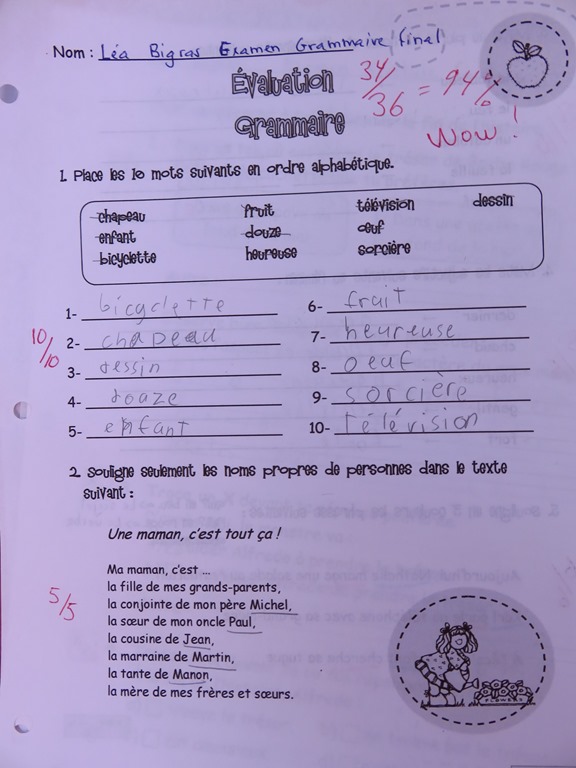 Nom : Léa Bigras Examen Grammaire final
Évaluation
Grammaire
34/36 = 94%
Wow !
1. Place les 10 mots suivants en ordre alphabétique.
chapeau fruit télévision dessin
enfant douze œuf
bicyclette heureuse sorcière
1- bicyclette 6- fruit
2- chapeau 7- heureuse
10/10
3- dessin 8- oeuf
4- douze 9- sorcière
5- enfant 10- télévision
2. Souligne seulement les noms propres de personnes dans le texte
suivant :
Une maman, c'est tout ça !
Ma maman, c'est ...
la fille de mes grands-parents,
5/5
la conjointe de mon père Michel,
la sœur de mon oncle Paul,
la cousine de Jean,
la marraine de Martin,
la tante de Manon,
la mère de mes frères et sœurs.